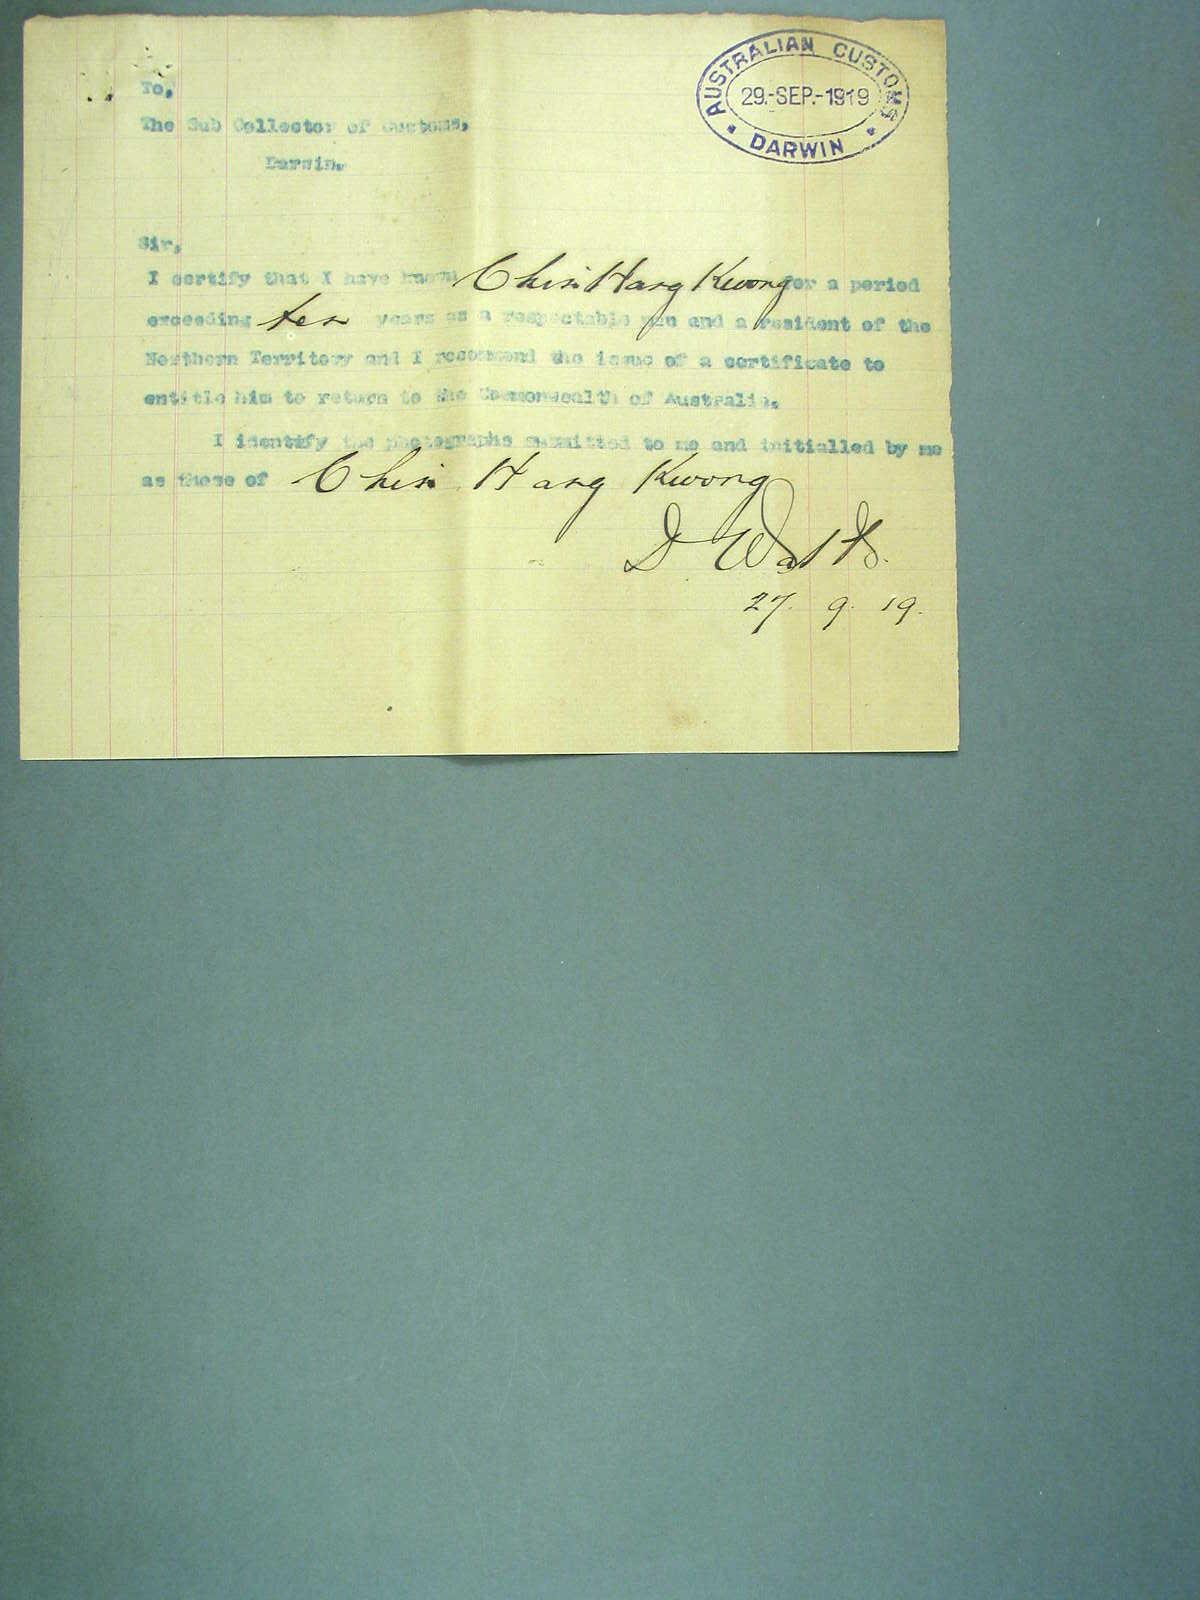 AUSTRALIAN CUSTOMS
29.-SEP.-1919
DARWIN
To,
The Sub Collector of Customs,
Darwin.
Sir,
I certify that I have known Chin Hang Kwong for a period
exceeding ten years as a respectable man and a resident of the
Northern Territory and I recommend the issue of a certificate to
entitle him to return to the Commonwealth of Australia.
I identify the photographs submitted to me and initialled by me
as those of Chin Hang Kwong
D Watts.
27. 9. 19.